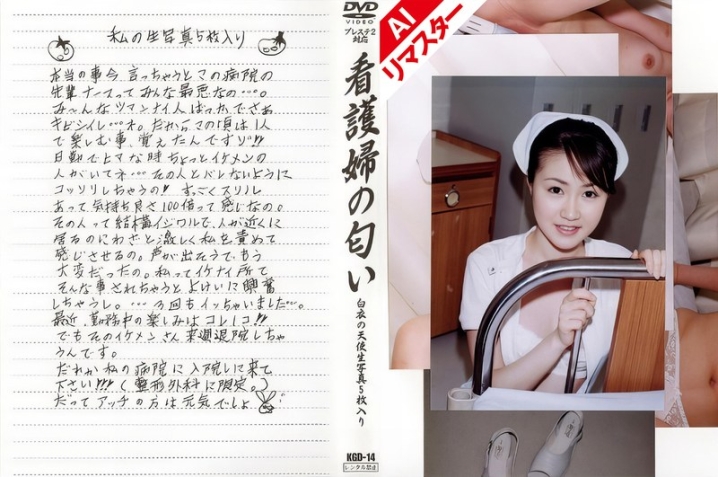 私の生写真5枚入り
本当の事今言っちゃうとこの病院の
先輩ナースってみんな最悪なの…。
み〜んなツマンナイ人ばっかでさぁ
キビシイし…ネ。だからこの頃は1人
で楽しむ事、覚えたんですぅ!!
日勤でヒマな時ちょっとイケメンの
人がいてネ…その人とバレないように
コッソリしちゃうの!! すっごくスリル
あって気持ち良さ100倍って感じなの。
その人って結構イジワルで、人が近くに
居るのにわざと激しく私を責めて
感じさせるの。声が出そうで、もう
大変だったの。私ってイケナイ所で
そんな事されちゃうとよけいに興奮
しちゃうし。…3回もイッちゃいました…。
最近、勤務中の楽しみはコレ1コ!!
でもそのイケメンさん来週退院しちゃ
うんです。
だれか私の病院に入院しに来て
下さい!!!(整形外科に限定。)
だってアッチの方は元気でしょ
DVD
VIDEO
プレステ2
対応
看護婦の匂い
白衣の天使生写真5枚入り
KGD-14
レンタル禁止
AI
リマスター